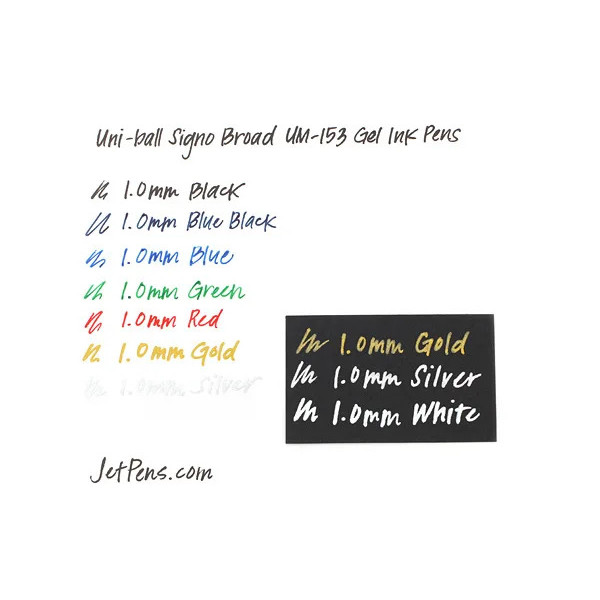 Uni-ball Signo Broad UM-153 Gel Ink Pens
1.0mm Black
1.0mm Blue Black
1.0mm Blue
1.0mm Green
1.0mm Red
1.0mm Gold
1.0mm Silver
1.0mm Gold
1.0mm Silver
1.0mm White
JetPens.com